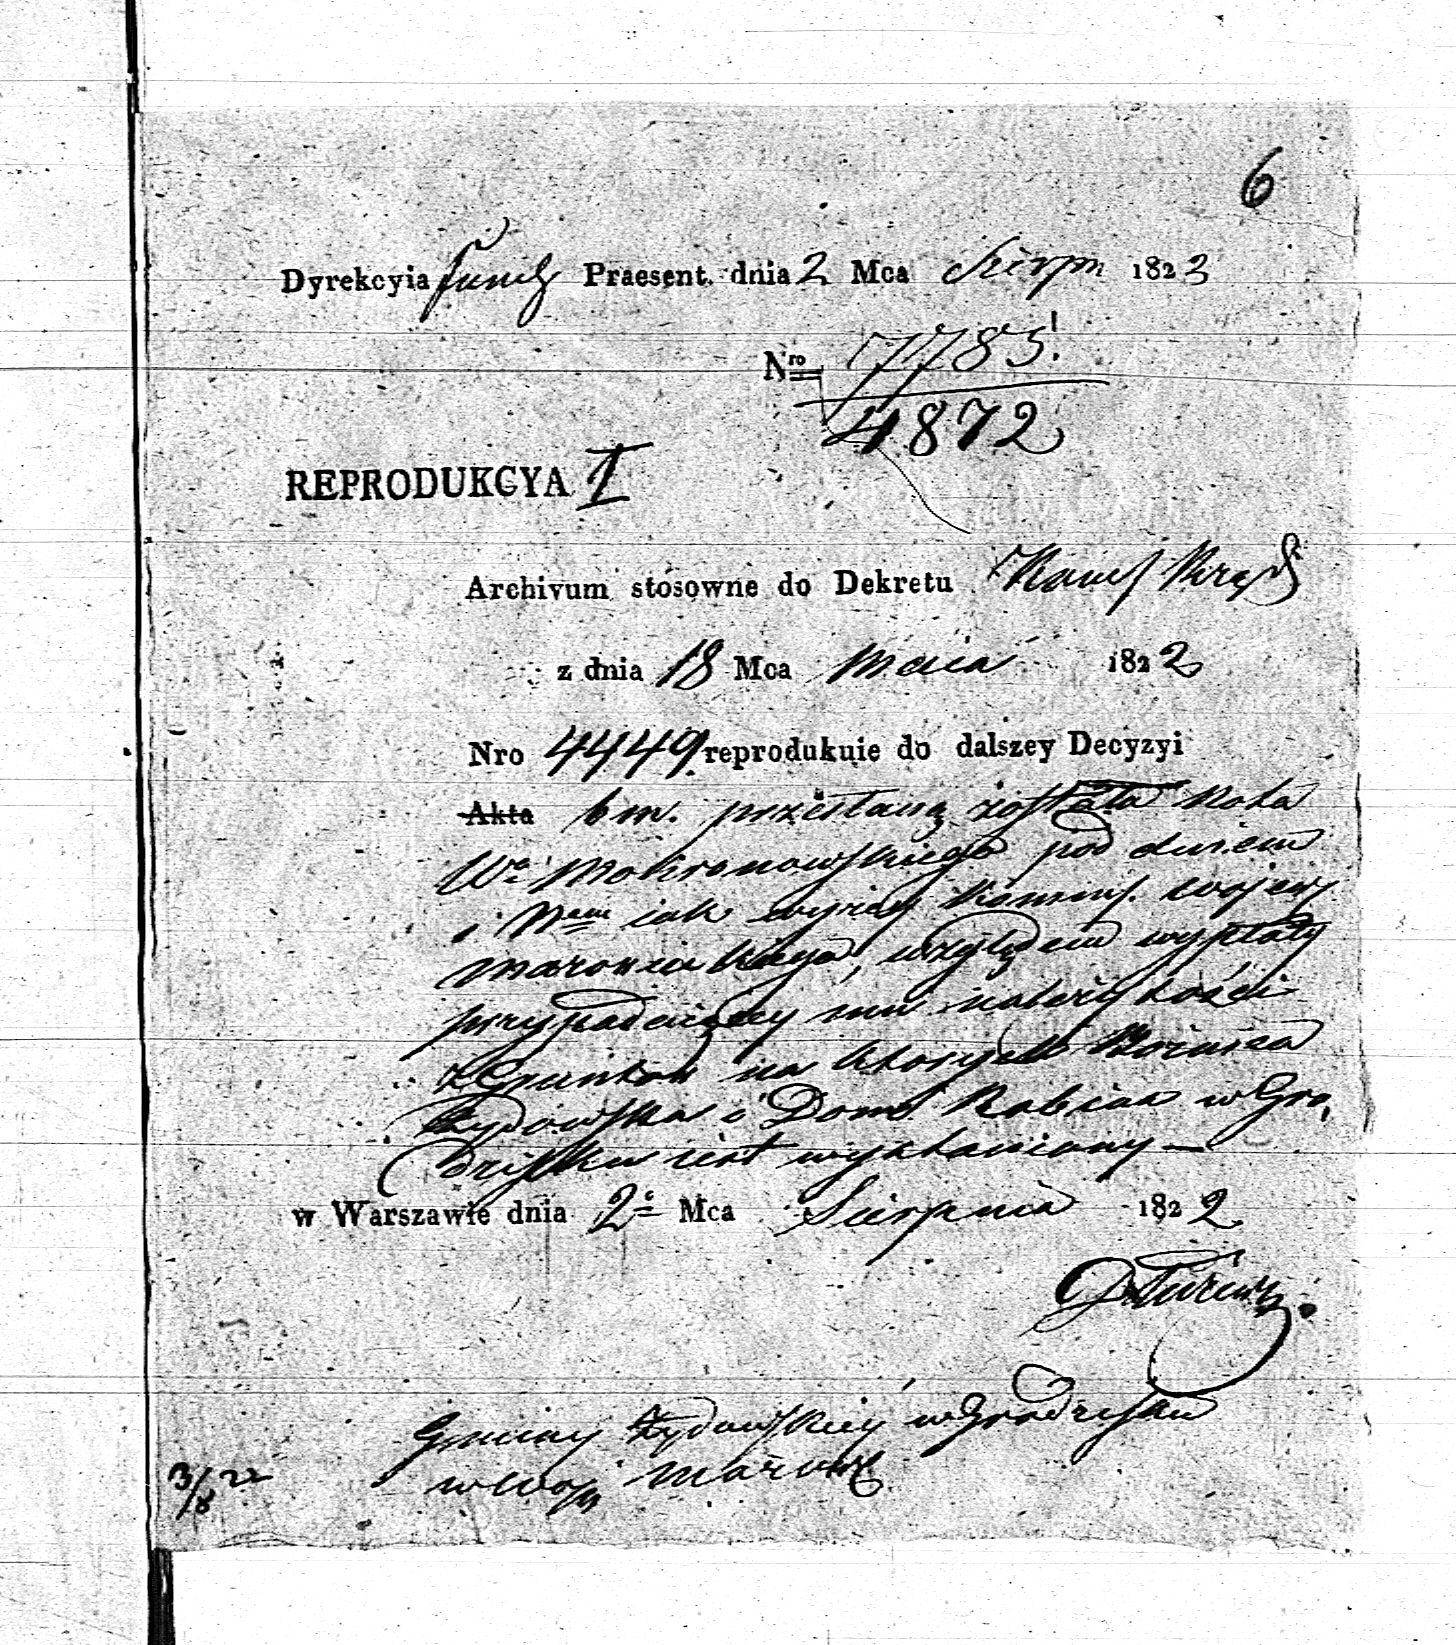 6
Dyrekcyia Fund Praesent. dnia 2 Mca Sierpn 1822
Nro 7785.
4872
REPRODUKCYA I
Archivum stósowne do Dekretu
z dnia 18 Mca Maia 1822
Nro 4449 reprodukuie do dalszey Decyzyi
Akta b m. przesłaną została Nota
Wo Mokronowskiego pod dniem
i Nrem iak wyżey Kommis. Wojew.
Mazowieckiego, względem wypłaty
przypadaiącey mu należytości
z Gruntów na których Bożnica
Żydowska i Dom Rabina w Gro
dzisku iest wystawiony —
w Warszawie dnia 2o Mca Sierpnia 1822
Gminy Żydowskiey w Grodzisku
w Woj Mazow
3/8 22